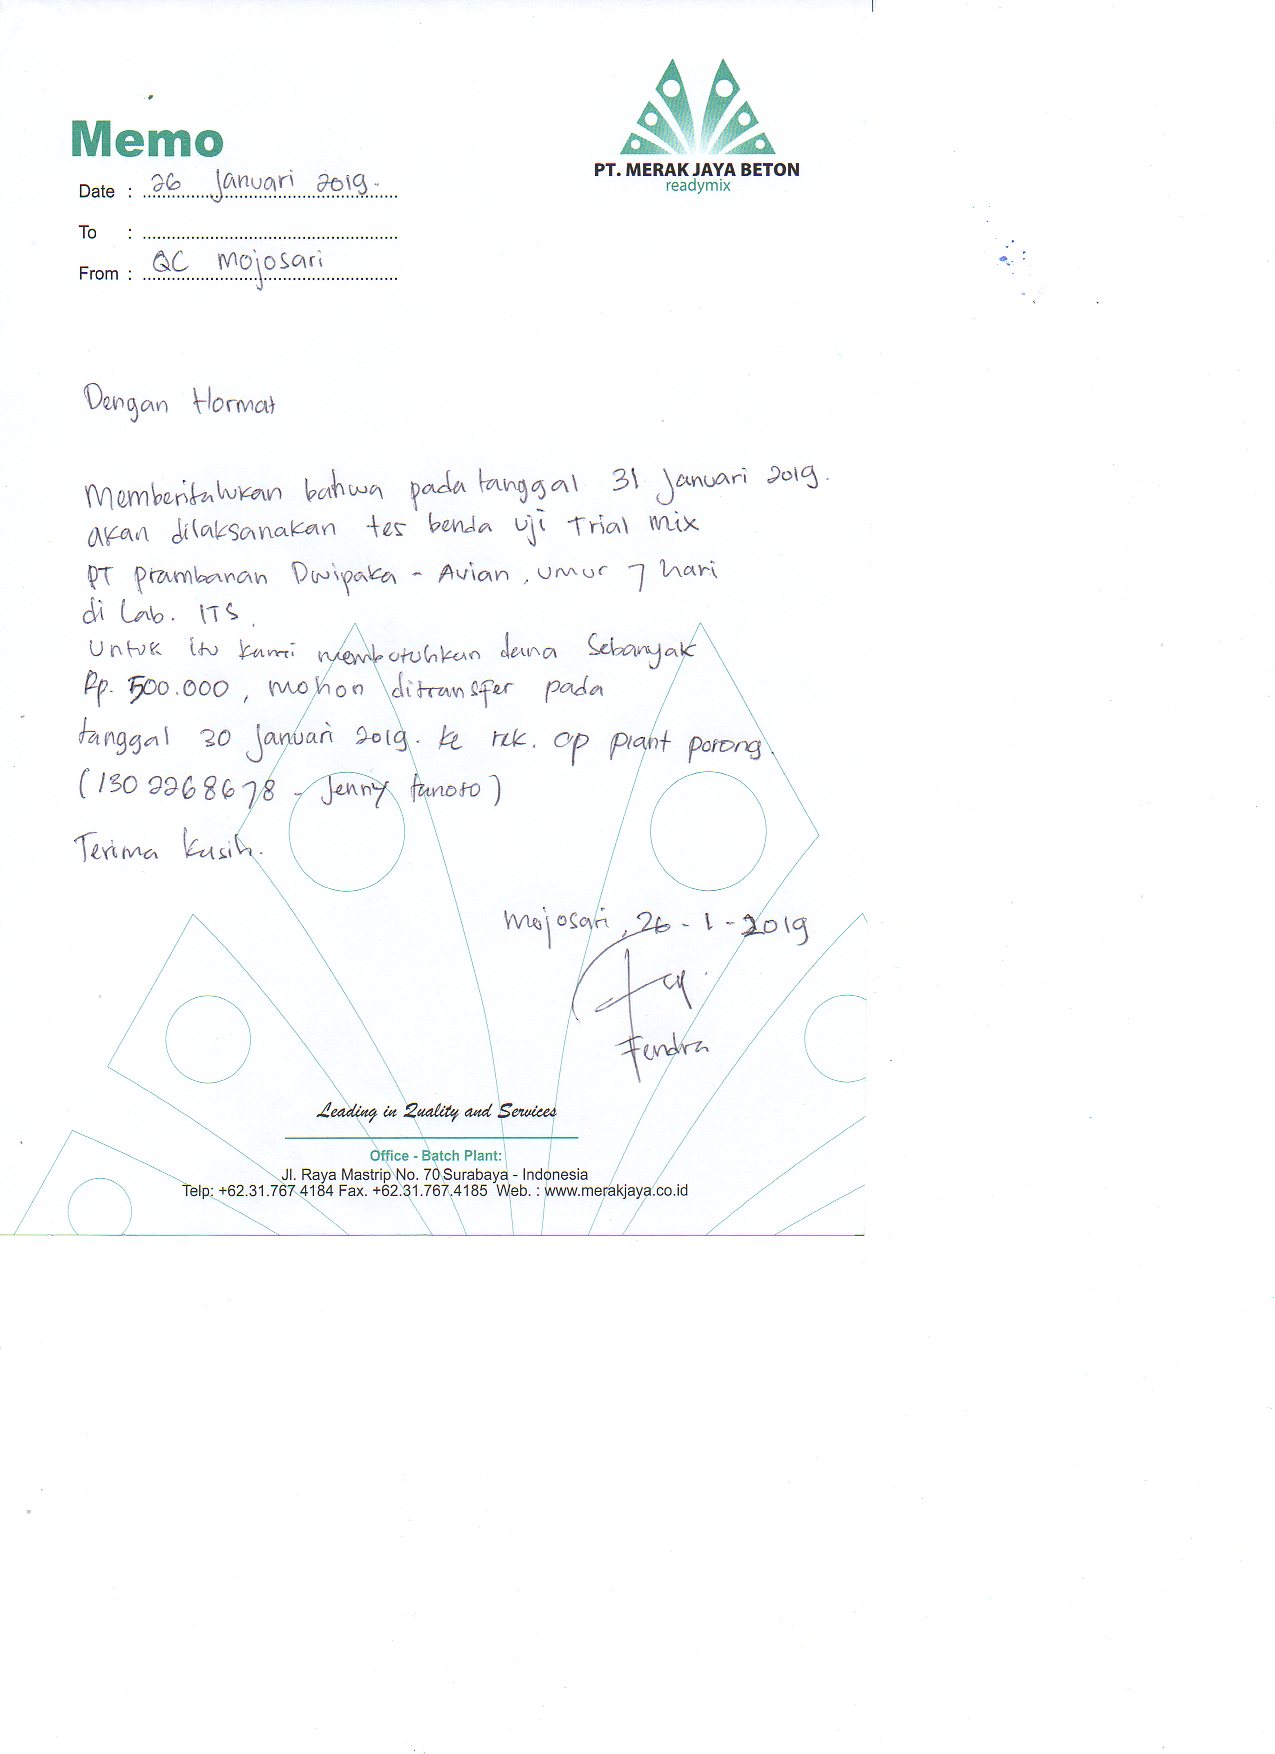 Memo
PT. MERAK JAYA BETON
readymix
Date : 26 Januari 2019.
To :
From : QC Mojosari
Dengan Hormat
Memberitahukan bahwa pada tanggal 31 Januari 2019.
akan dilaksanakan tes benda uji Trial mix
PT prambanan Dwipaka - Avian, umur 7 hari
di Lab. ITS.
Untuk itu kami membutuhkan dana Sebanyak
Rp. 500.000, mohon ditransfer pada
tanggal 30 Januari 2019. ke rek. op plant porong.
(130 2268678 - Jenny tanoto)
Terima Kasih.
Mojosari, 26-1-2019
Fendra
Leading in Quality and Services
Office - Batch Plant:
Jl. Raya Mastrip No. 70 Surabaya - Indonesia
Telp: +62.31.767 4184 Fax. +62.31.767.4185 Web. : www.merakjaya.co.id